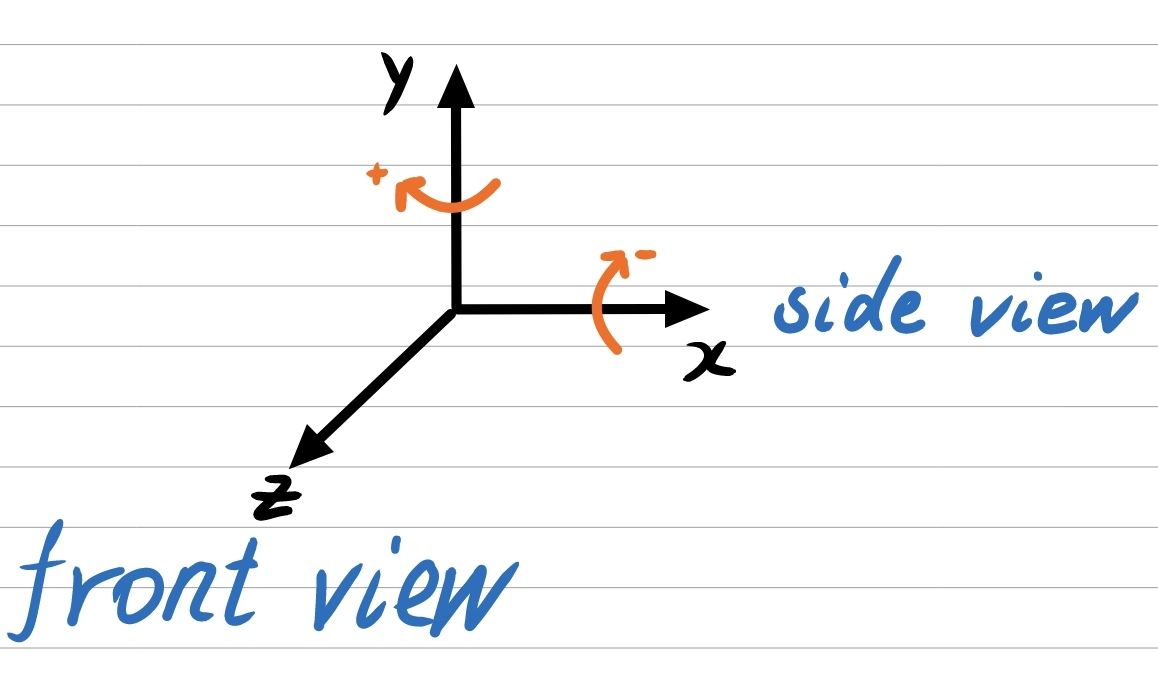 y
+
-
side view
x
z
front view